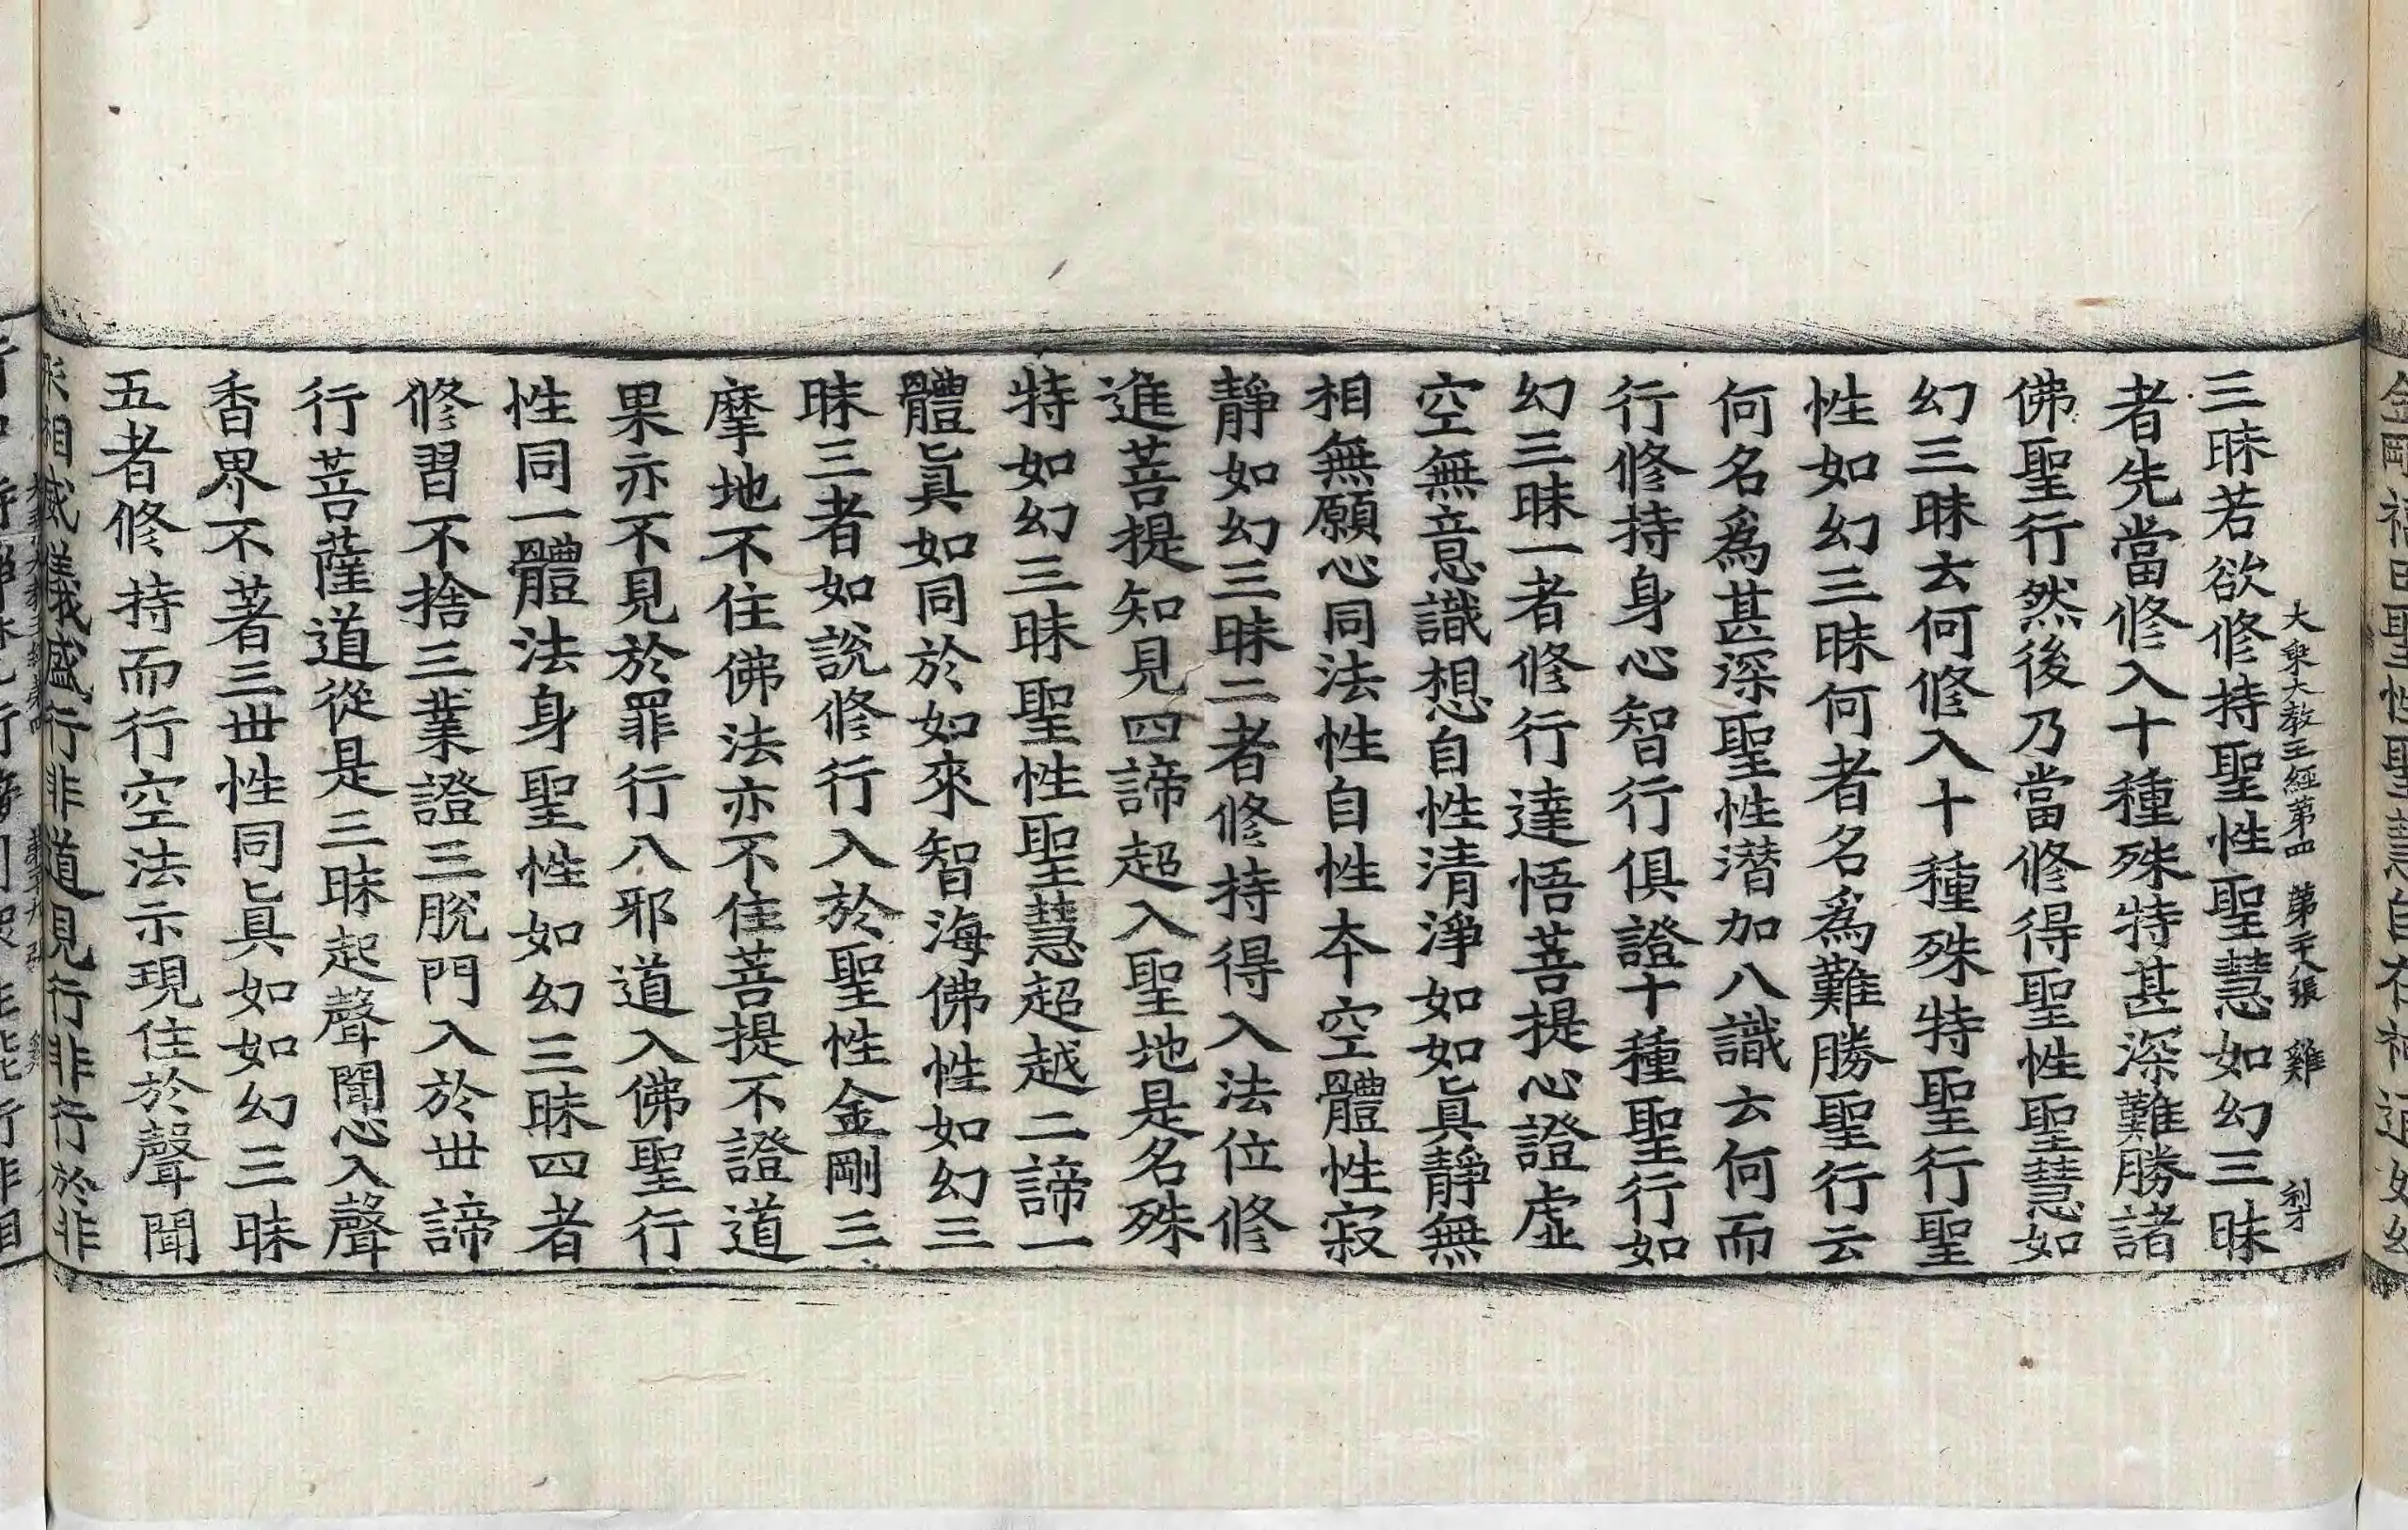 金剛福田聖性聖慧自在神通如幻
大乗大教王經第四 第二十八張 雞
三昧若欲修持聖性聖慧如幻三昧
者先當修入十種殊特甚深難勝諸
佛聖行然後乃當修得聖性聖慧如
幻三昧去何修入十種殊特聖行聖
性如幻三昧何者名為難勝聖行云
何名爲甚深聖性潜加八識去何而
行修持身心智行俱證十種聖行如
幻三昧一者修行達悟菩提心證虛
空無意識想自性清淨如如真靜無
相無願心同法性自性本空體性寂
靜如幻三昧二者修持得入法位修
進菩提知見四諦超入聖地是名殊
特如幻三昧聖性聖慧超越二諦一
體真如同於如來智海佛性如幻三
昧三者如說修行入於聖性金剛三
摩地不住佛法亦不住菩提不證道
果亦不見於罪行八邪道入佛聖行
性同一體法身聖性如幻三昧四者
修習不捨三業證三脫門入於世諦
行菩薩道從是三昧起聲聞心入聲
香界不著三世性同真如如幻三昧
五者修持而行空法示現住於聲聞
相威儀盛行非道見行非行於非